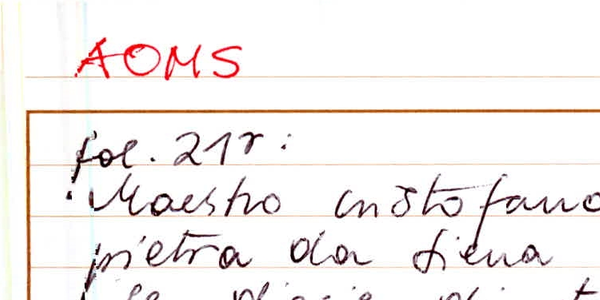 AOMS
fol. 21r:
"Maestro cristofano
pietra da siena